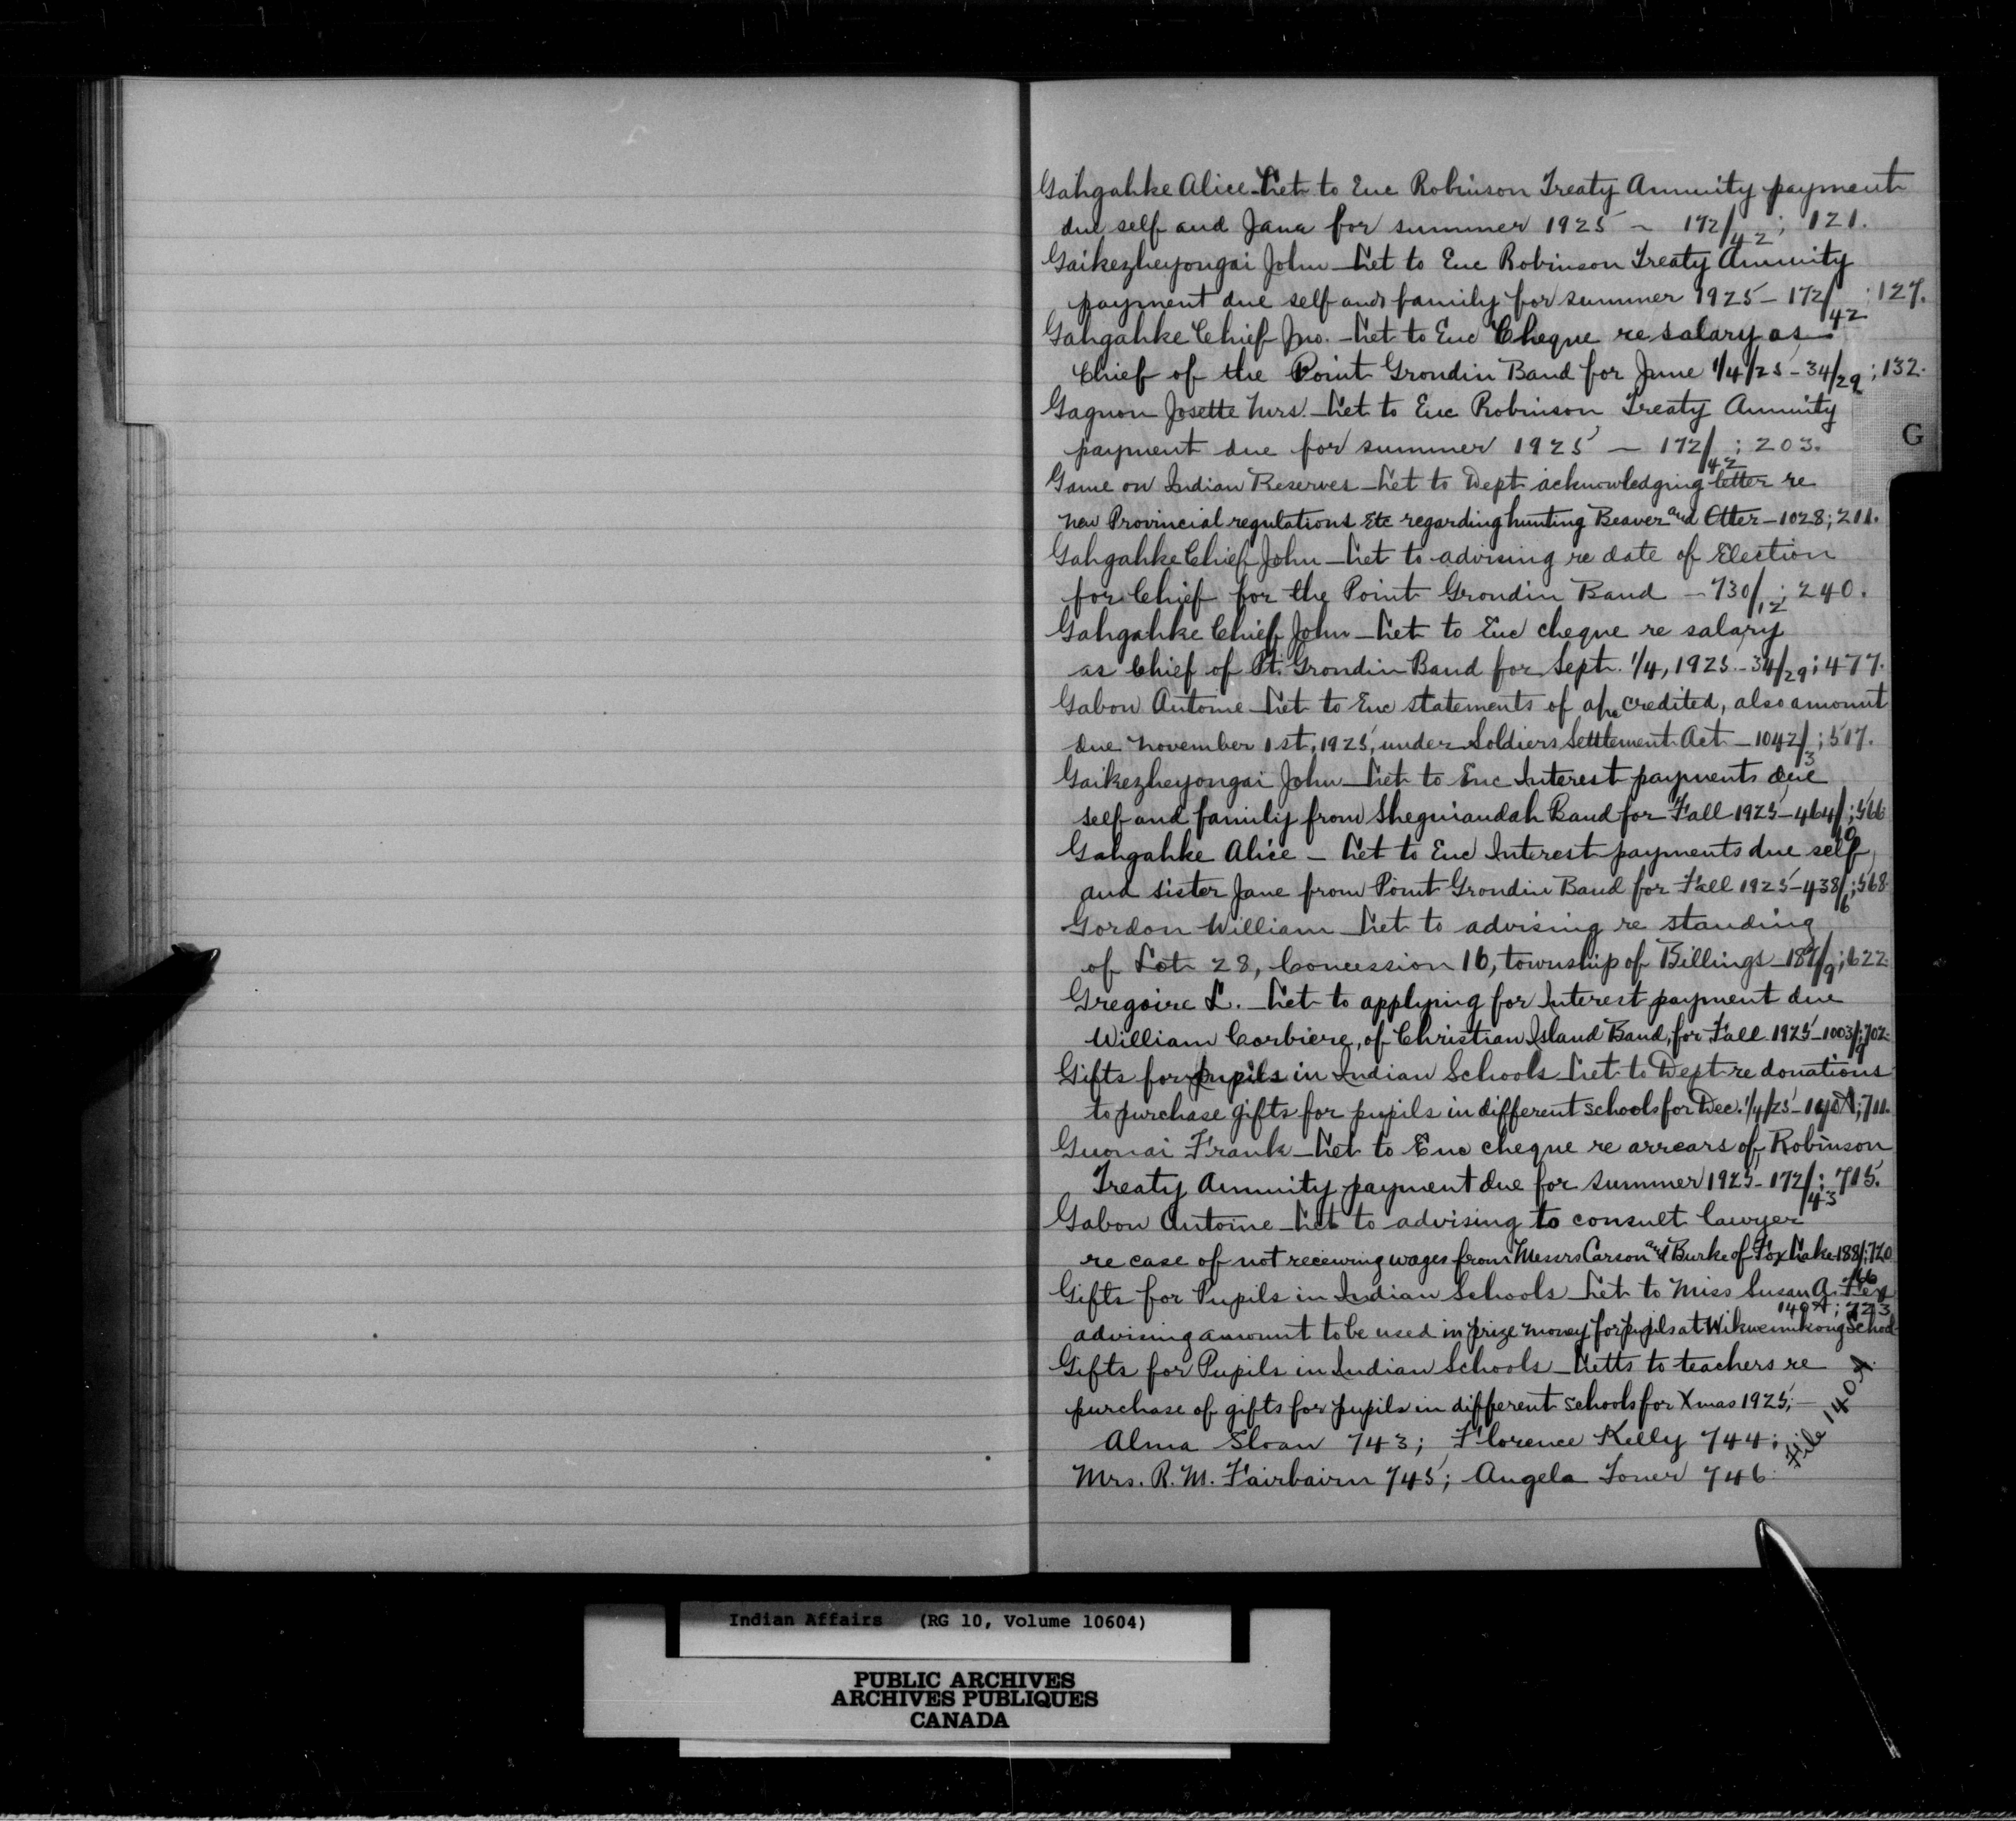 Gahgahke Alice - Let to Enc Robinson Treaty Annuity payment
due self and Jane for summer 1925 - 172/42; 121.
Gaikezheyongai John - Let to Enc Robinson Treaty Annuity
payment due self and family for summer 1925 - 172/42; 127.
Gahgahke Chief Jno. - Let to Enc Cheque re salary as
Chief of the Point Grondin Band for June 1/4/25 - 34/29; 132.
Gagnon Josette Mrs. - Let to Enc Robinson Treaty Annuity
payment due for summer 1925 - 172/42; 203.
G
Game on Indian Reserves - Let to Dept acknowledging letter re
new Provincial regulations Etc regarding hunting Beaver and Otter - 1028; 211.
Gahgahke Chief John - Let to advising re date of Election
for Chief for the Point Grondin Band - 730/12; 240.
Gahgahke Chief John - Let to Enc cheque re salary
as Chief of Pt. Grondin Band for Sept. 1/4, 1925 - 34/29; 477.
Gabow Antoine - Let to Enc statements of credited, also amount
due November 1st, 1925, under Soldiers Setttement Act - 1042/3; 517.
Gaikezheyongai John - Let to Enc Interest payments due
self and family from Sheguiandah Band for Fall 1925 - 464/10; 566
Gahgahke Alice - Let to Enc Interest payments due self
and sister Jane from Point Grondin Band for Fall 1925 - 438/6; 568.
Gordon William - Let to advising re standing
of Lot 28, Concession 16, township of Billings - 187/9; 622.
Gregoire L. - Let to applying for Interest payment due
William Corbiere, of Christian Island Band, for Fall 1925 - 1003/9; 702.
Gifts for pupils in Indian Schools - Let to Dept re donations
to purchase gifts for pupils in different schools for Dec. 1/4/25 - 140A; 711.
Guonai Frank - Let to Enc cheque re arrears of Robinson
Treaty Annuity payment due for summer 1925 - 172/43; 715.
Gabow Antoine - Let to advising to consult lawyer
re case of not receiving wages from Messrs Carson and Burke of Fox Lake 188/66; 720
Gifts for Pupils in Indian Schools - Let to Miss Susan A.
140A; 723
advising amount to be used in prize money for pupils at Wikwemikong School
Gifts for Pupils in Indian Schools - Letts to teachers re
purchase of gifts for pupils in different schools for Xmas 1925, -
Alma Sloan 743; Florence Kelly 744;
Mrs. R. M. Fairbairn 745; Angela Toner 746.
File 140A.
Indian Affairs (RG 10, Volume 10604)
PUBLIC ARCHIVES
ARCHIVES PUBLIQUES
CANADA